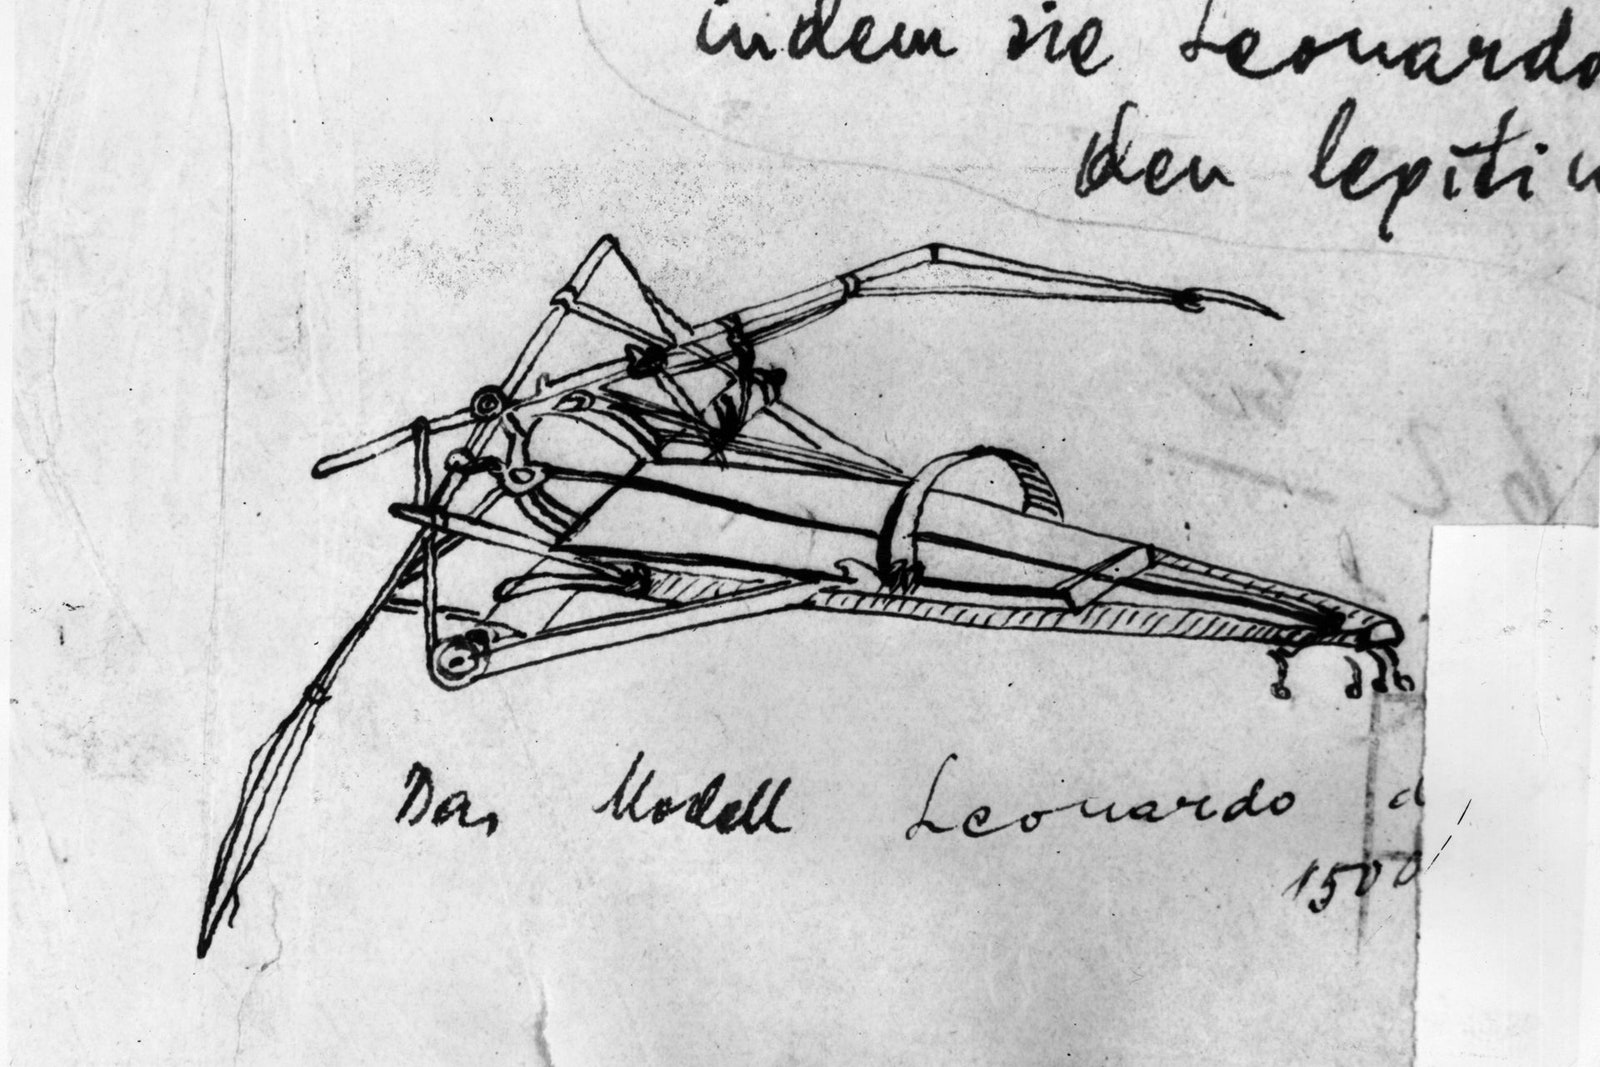 indem sie Leonardo
den
Das Modell Leonardo d
1500